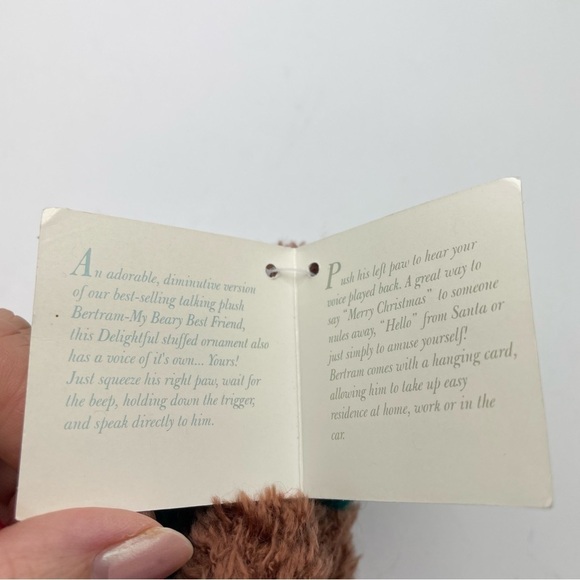 An adorable, diminutive version
of our best-selling talking plush
Bertram-My Beary Best Friend,
this Delightful stuffed ornament also
has a voice of it's own... Yours!
Just squeeze his right paw, wait for
the beep, holding down the trigger,
and speak directly to him.
Push his left paw to hear your
voice played back. A great way to
say "Merry Christmas" to someone
miles away, "Hello" from Santa or
just simply to amuse yourself!
Bertram comes with a hanging card,
allowing him to take up easy
residence at home, work or in the
car.